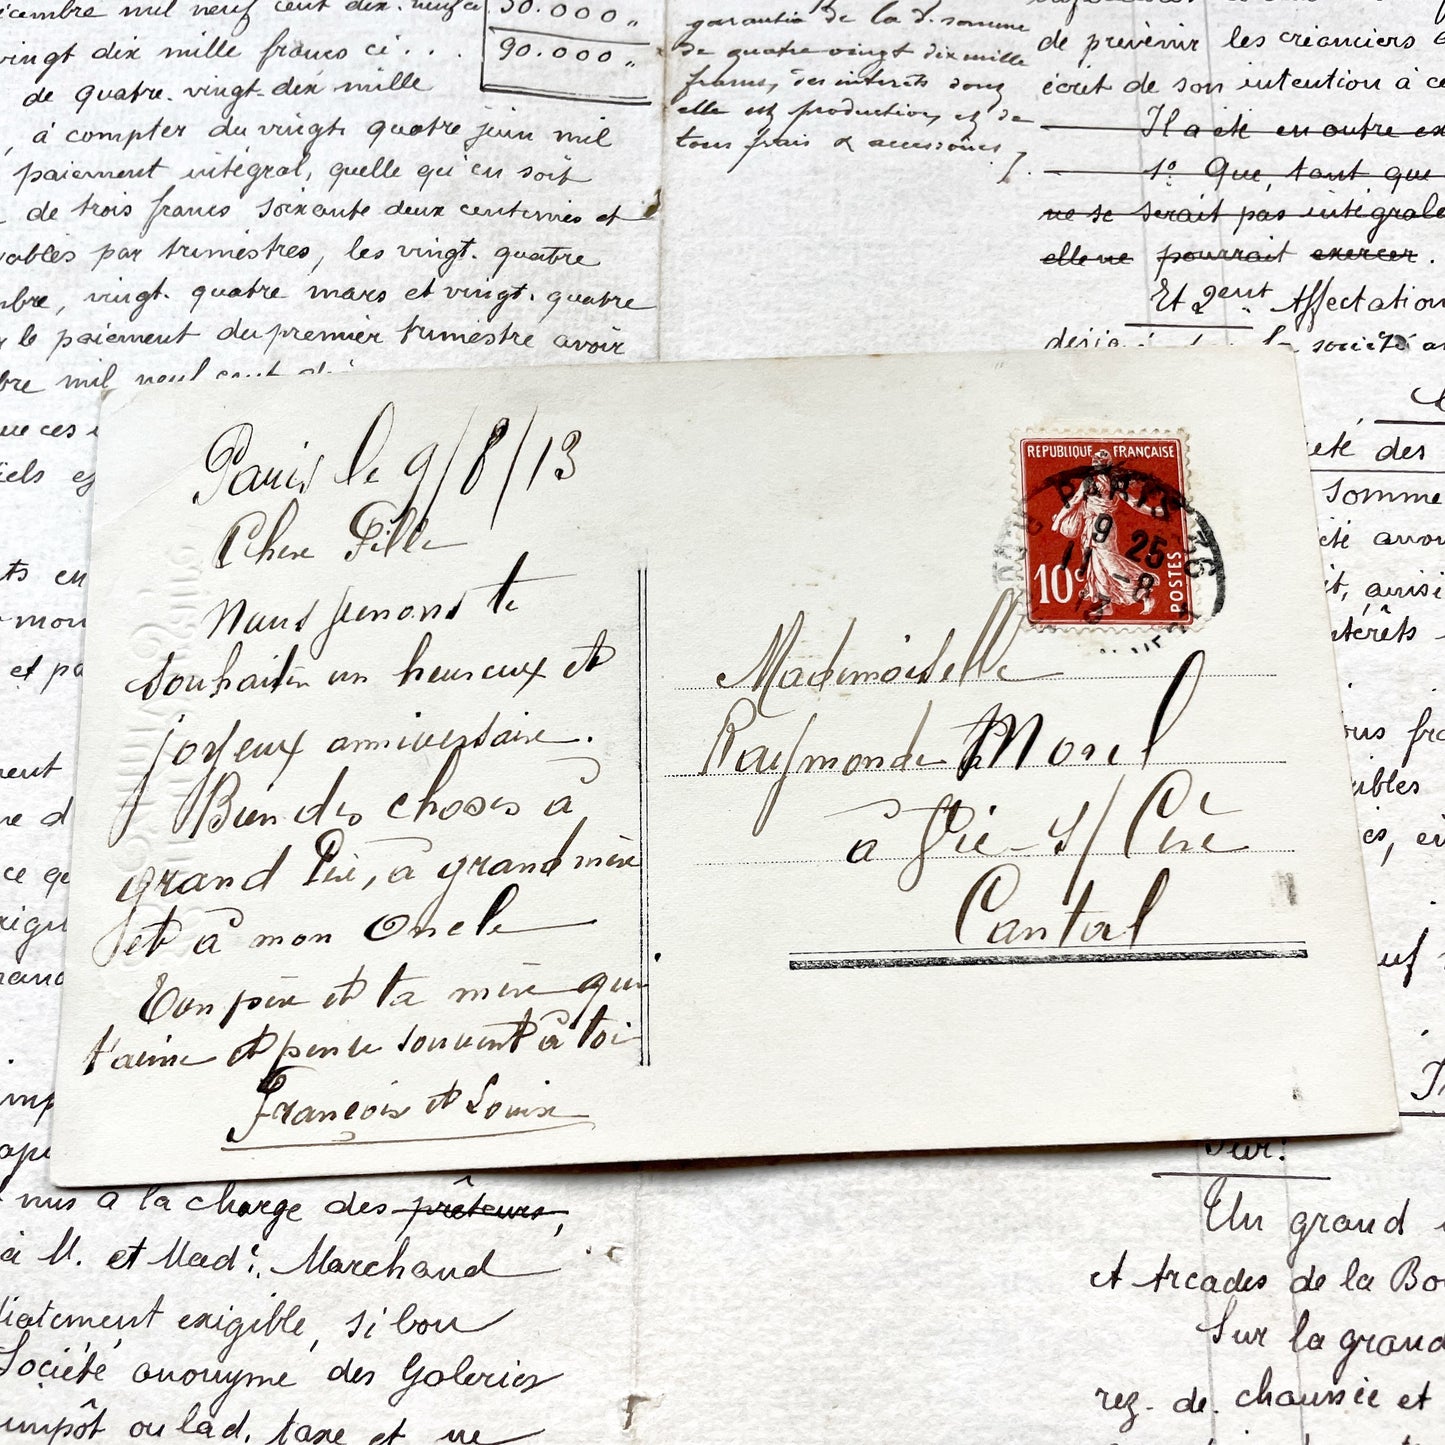 cembre mil neuf cent dix-neuf ci
50.000 „
vingt dix mille francs ci . . .
90.000 „
de quatre-vingt-dix mille
, à compter du vingt quatre juin mil
paiement intégral, quelle qu'en soit
de trois francs soixante deux centimes et
vables par trimestres, les vingt-quatre
mbre, vingt-quatre mars et vingt-quatre
le paiement du premier trimestre avoir
bre mil neuf cent
garantie de la d. somme
de quatre vingt dix mille
francs, des intérêts dont
elle est productive, et de
tous frais & accessoires
de prévenir les créanciers
écrit de son intention à ce
Il a été en outre ex
1º Que, tant que
ne se serait pas intégrale
elle ne pourrait exercer.
Et 2ent Affectation
société a
Paris le 9/8/13
Chere Fille
Nous venons te
souhaiter un heureux et
joyeux anniversaire.
Bien des choses à
grand Père, à grand mère
et à mon Oncle
Ton père et ta mère qui
t'aime et pense souvent à toi
François et Louise
REPUBLIQUE FRANÇAISE
10c
POSTES
PARIS
9 25
11 -8
13
Mademoiselle
Raymonde Morel
à Vic-s/Cère
Cantal
eté des
somme
été anon
it, ainsi
ntérêts
ous fra
sibles
nus à la charge des prêteurs,
à M. et Made. Marchand
diatement exigible, si bon
Société anonyme des Galeries
impôt ou lad. taxe et ne
Sur:
Un grand
et Arcades de la Bo
Sur la grand
rez-de-chaussée et